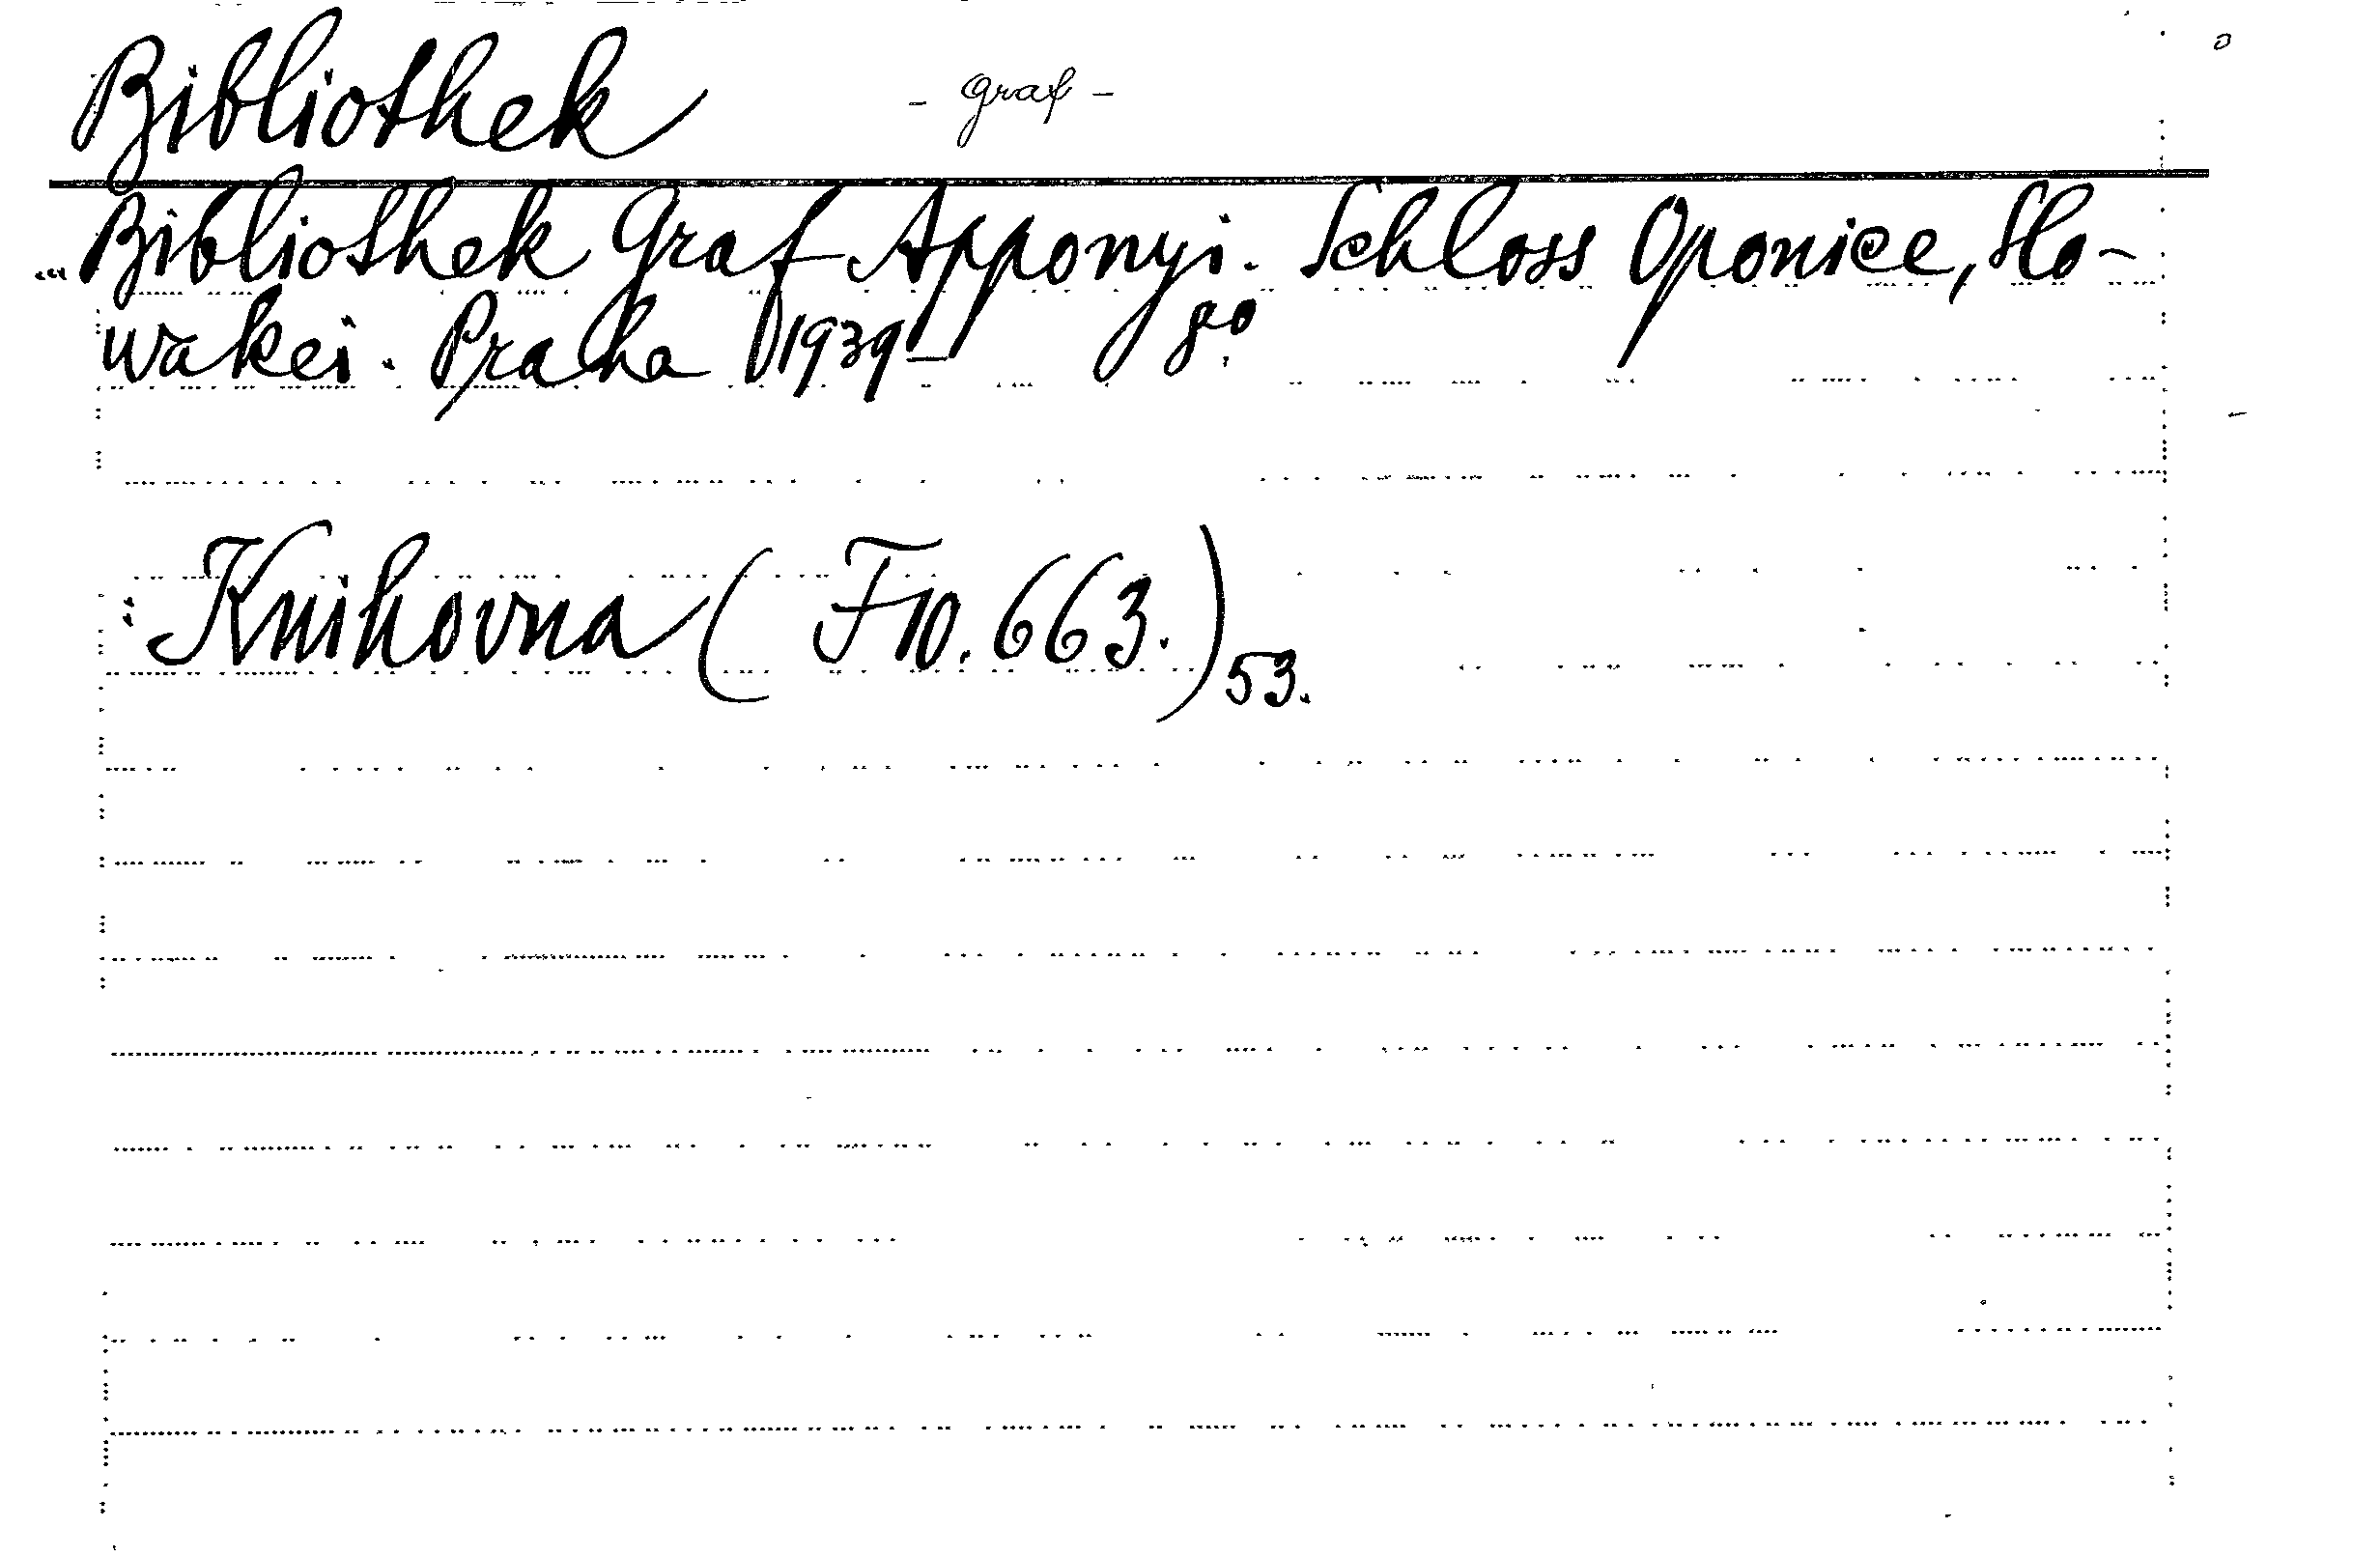 Bibliothek - Graf -
Bibliothek Graf Apponyi. Schloss Oponice, Slo-
wakei. Praha 1939- 8o.
Knihovna (F10.663.)53.